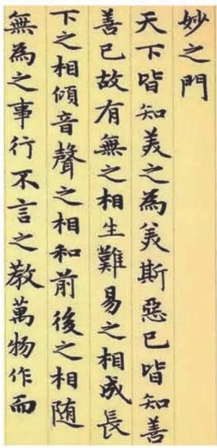 妙之門
天下皆知美之為美斯惡已皆知善
善已故有無之相生難易之相成長
下之相傾音聲之相和前後之相随
無為之事行不言之教萬物作而